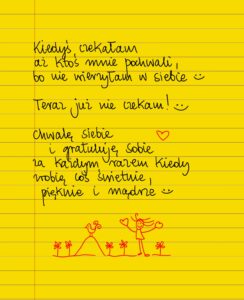 Kiedyś czekałam
aż ktoś mnie pochwali,
bo nie wierzyłam w siebie
Teraz już nie czekam!
Chwalę siebie
i gratuluję sobie
za każdym razem kiedy
robię coś świetnie,
pięknie i mądrze